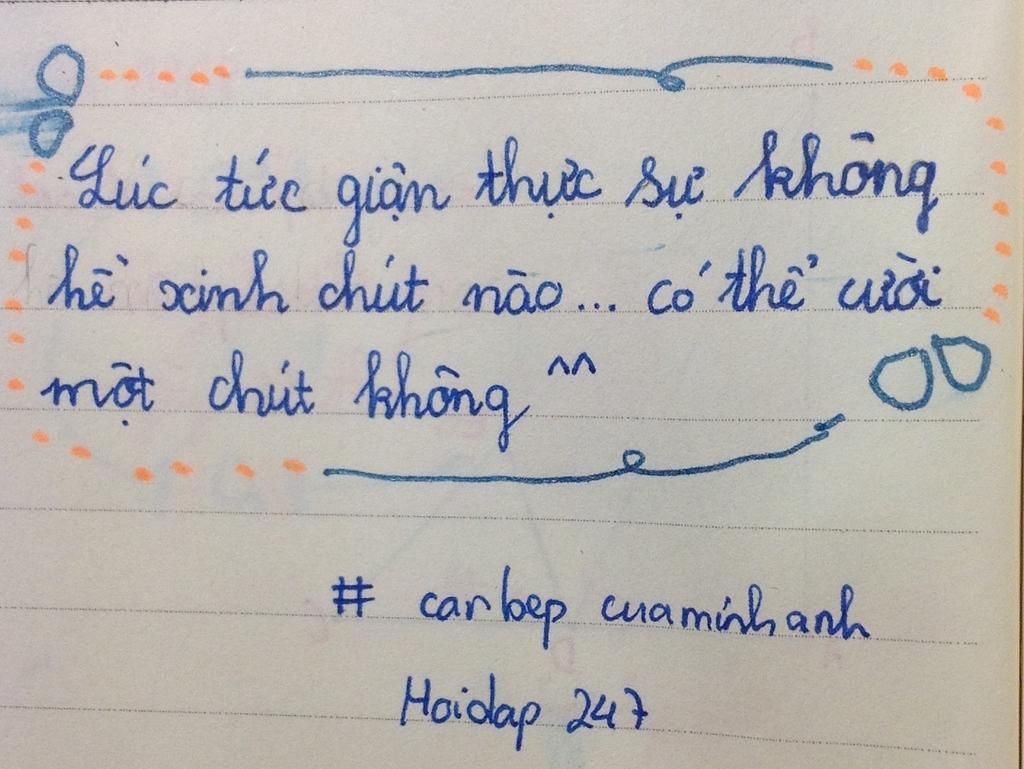 Lúc tức giận thực sự không
hề xinh chút nào... có thể cười
một chút không ^^
# carbep cuaminhanh
Hoidap 247